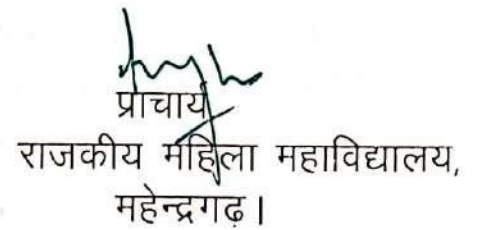 प्राचार्य
राजकीय महिला महाविद्यालय,
महेन्द्रगढ़।